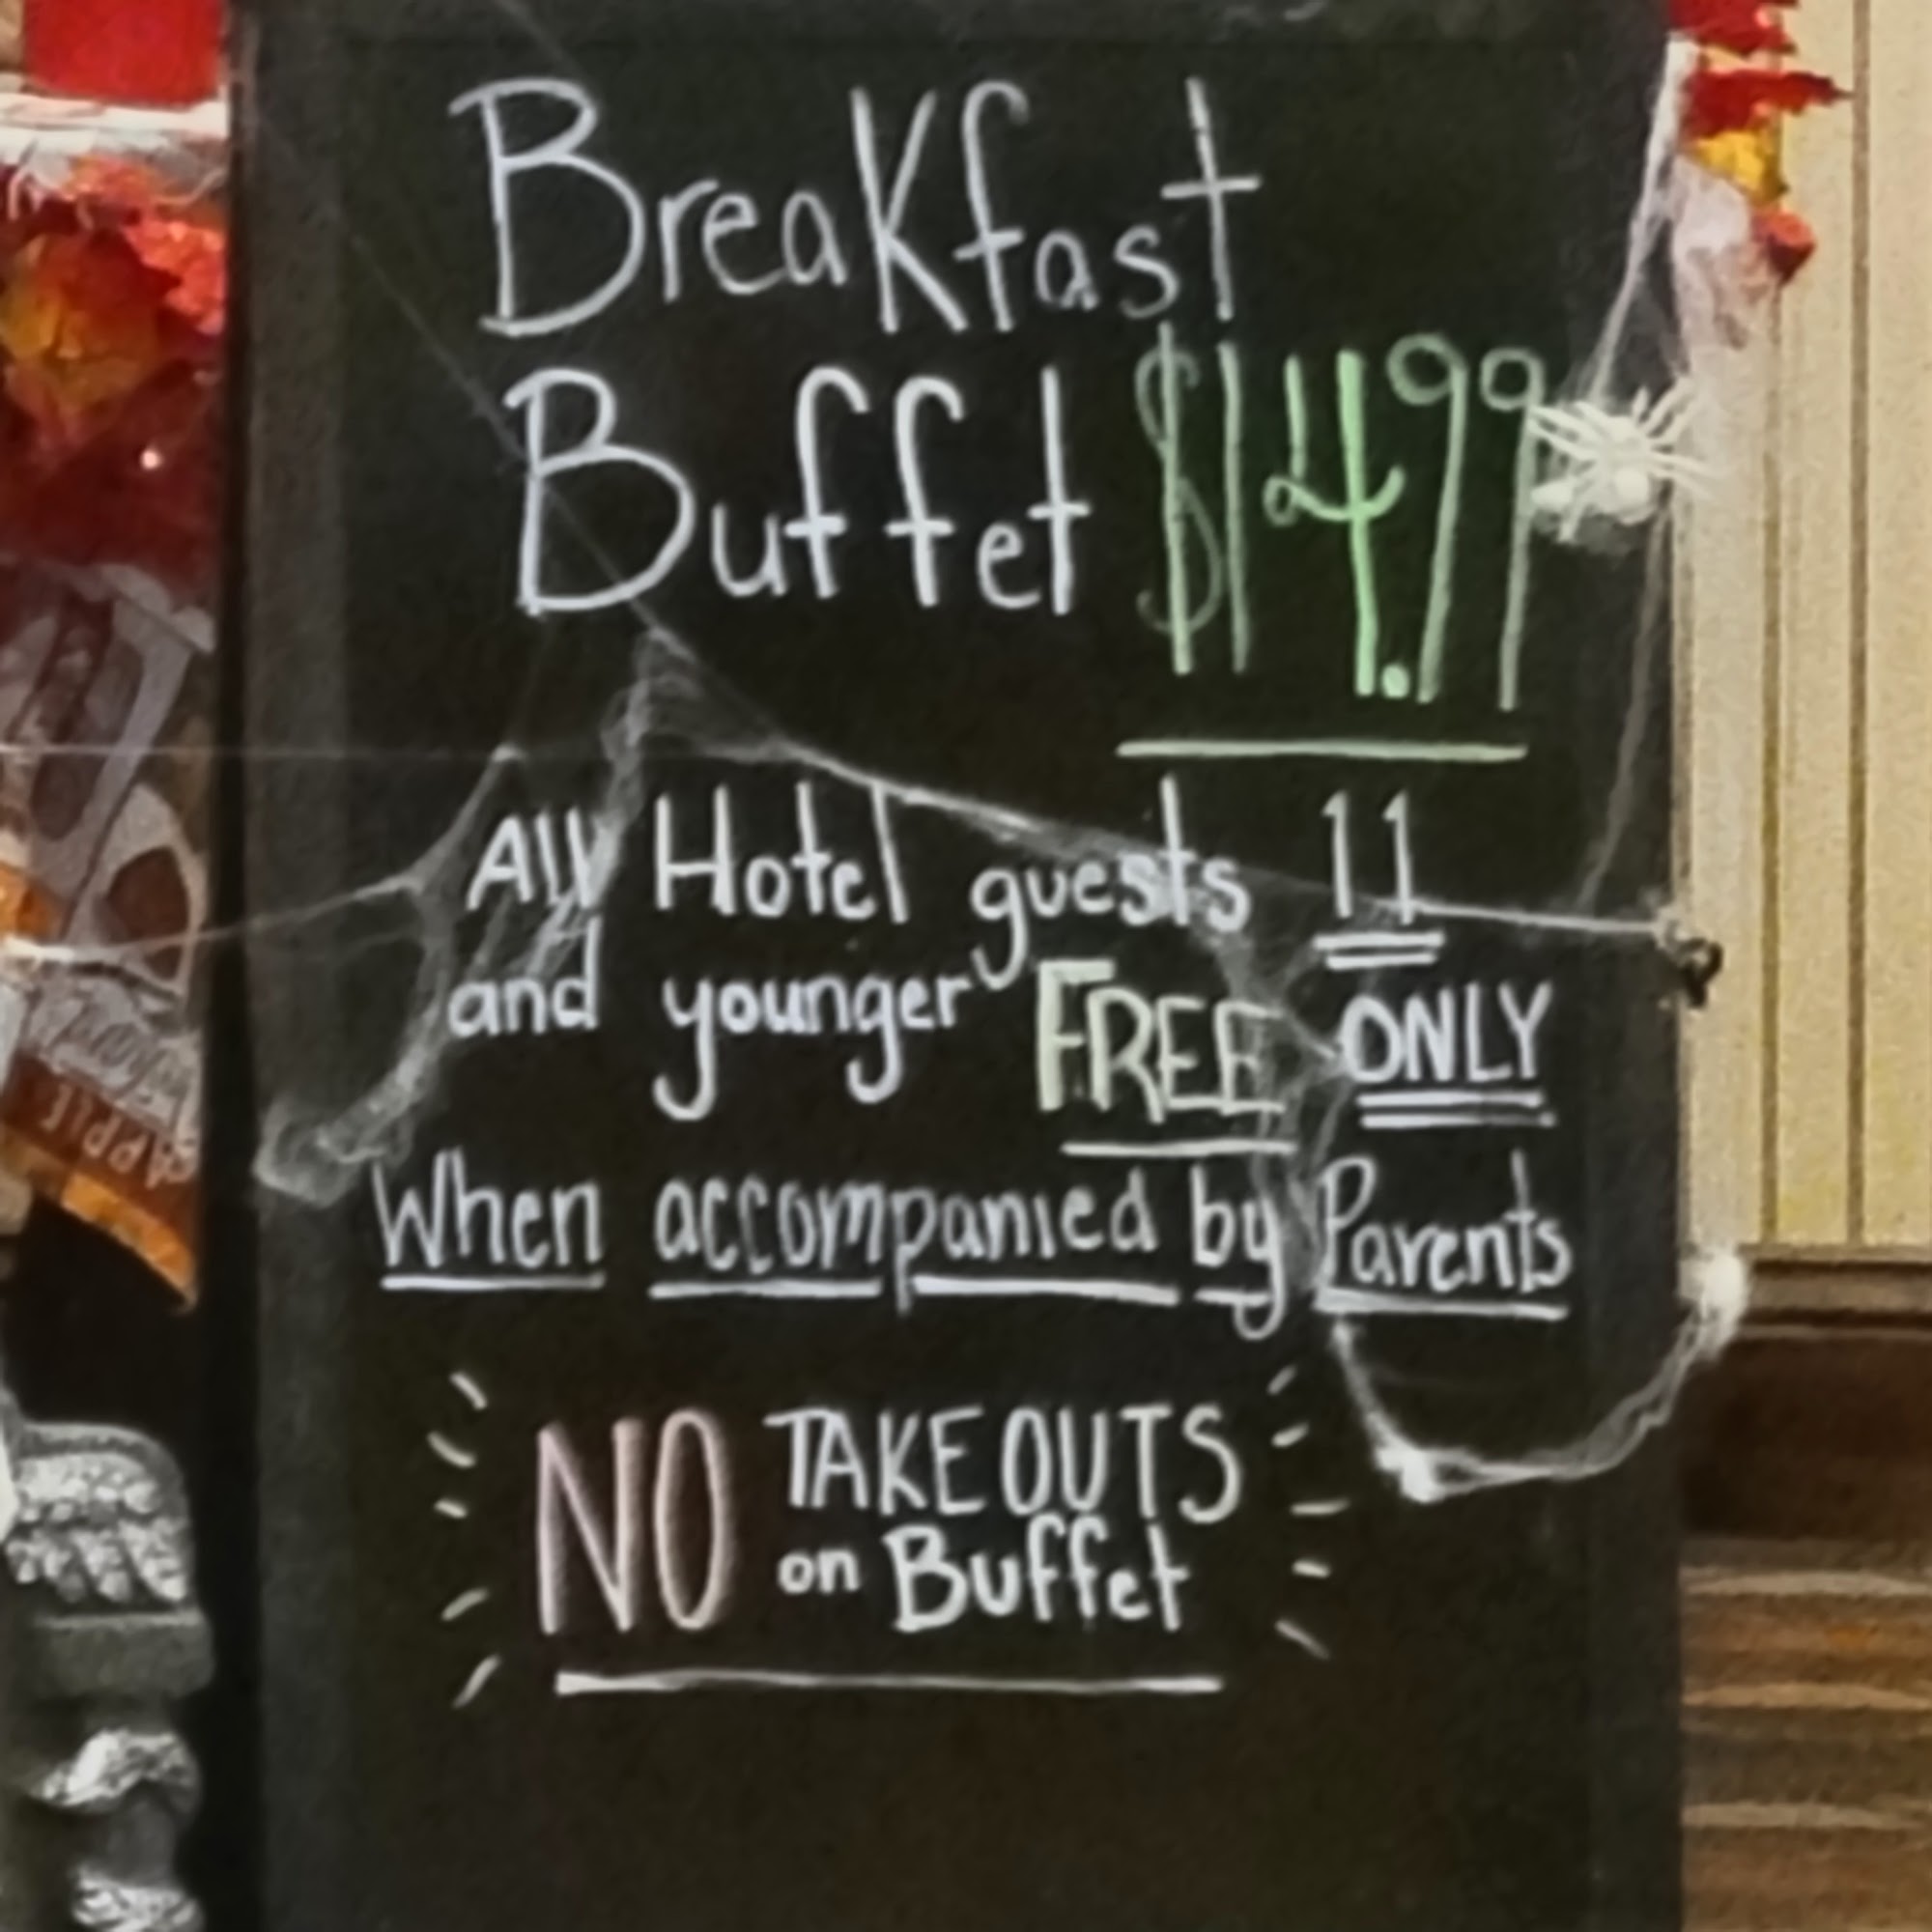 BreaKfast
Buffet $14.99
All Hotel guests 11
and younger FREE ONLY
When accompanied by Parents
NO TAKEOUTS
on Buffet
APPLE